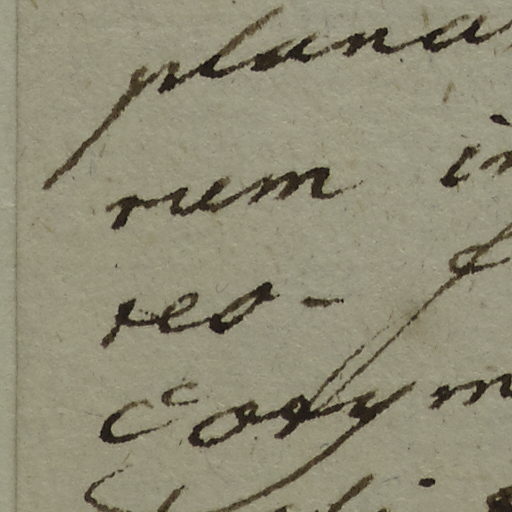 plana
rum in
reo-
Corym